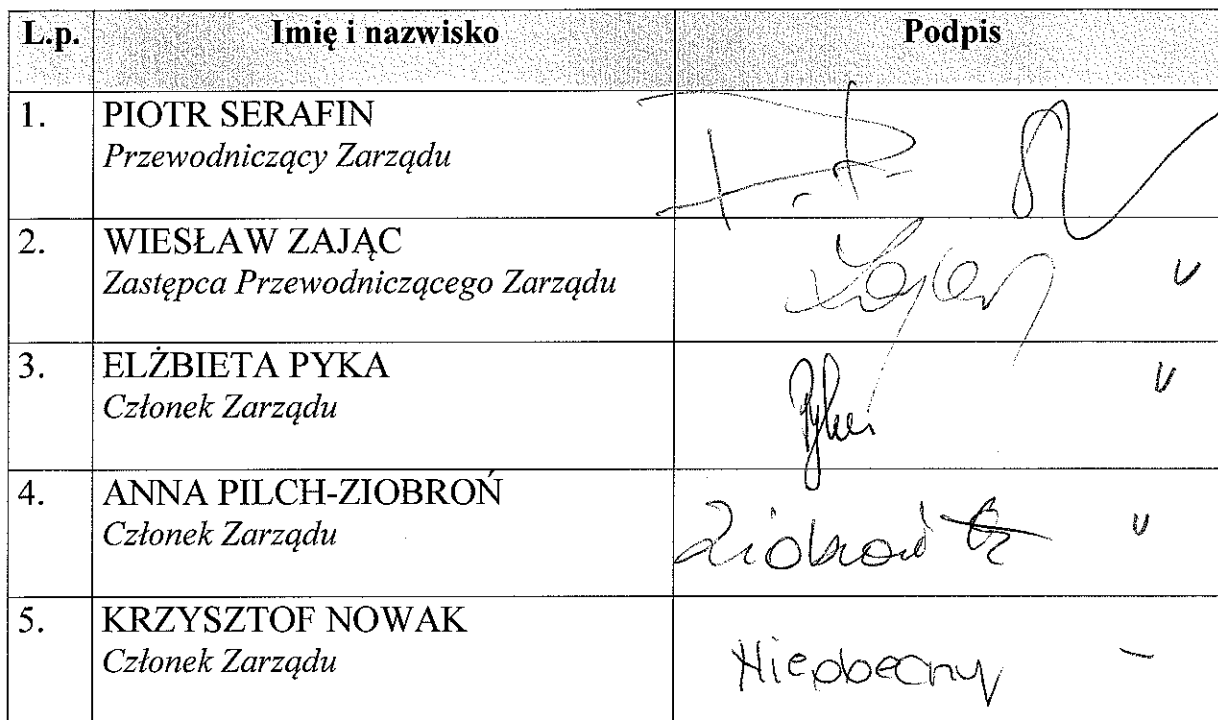 L.p. Imię i nazwisko Podpis
1. PIOTR SERAFIN
Przewodniczący Zarządu
2. WIESŁAW ZAJĄC
Zastępca Przewodniczącego Zarządu
v
3. ELŻBIETA PYKA
Członek Zarządu
v
4. ANNA PILCH-ZIOBROŃ
Członek Zarządu
Ziobroń v
5. KRZYSZTOF NOWAK
Członek Zarządu
Nieobecny –